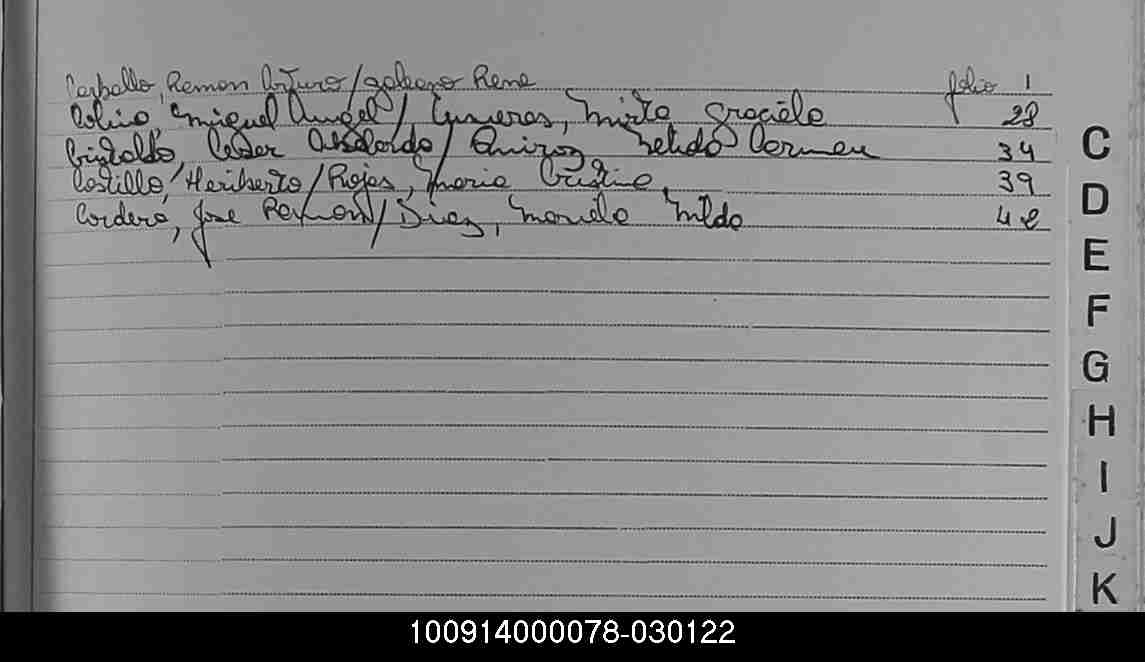 Carballo, Ramon Arturo / galeano Rene folio 1
Miguel Angel / Mirta Graciela 28
Cristaldo, Cesar Abelardo / Quiroz Carmen 34
Castillo, Heriberto / Rojas, Maria Cristina 39
Cordero, Jose Ramon / Diaz, Mariela Nilda 42
C
D
E
F
G
H
I
J
K
100914000078-030122